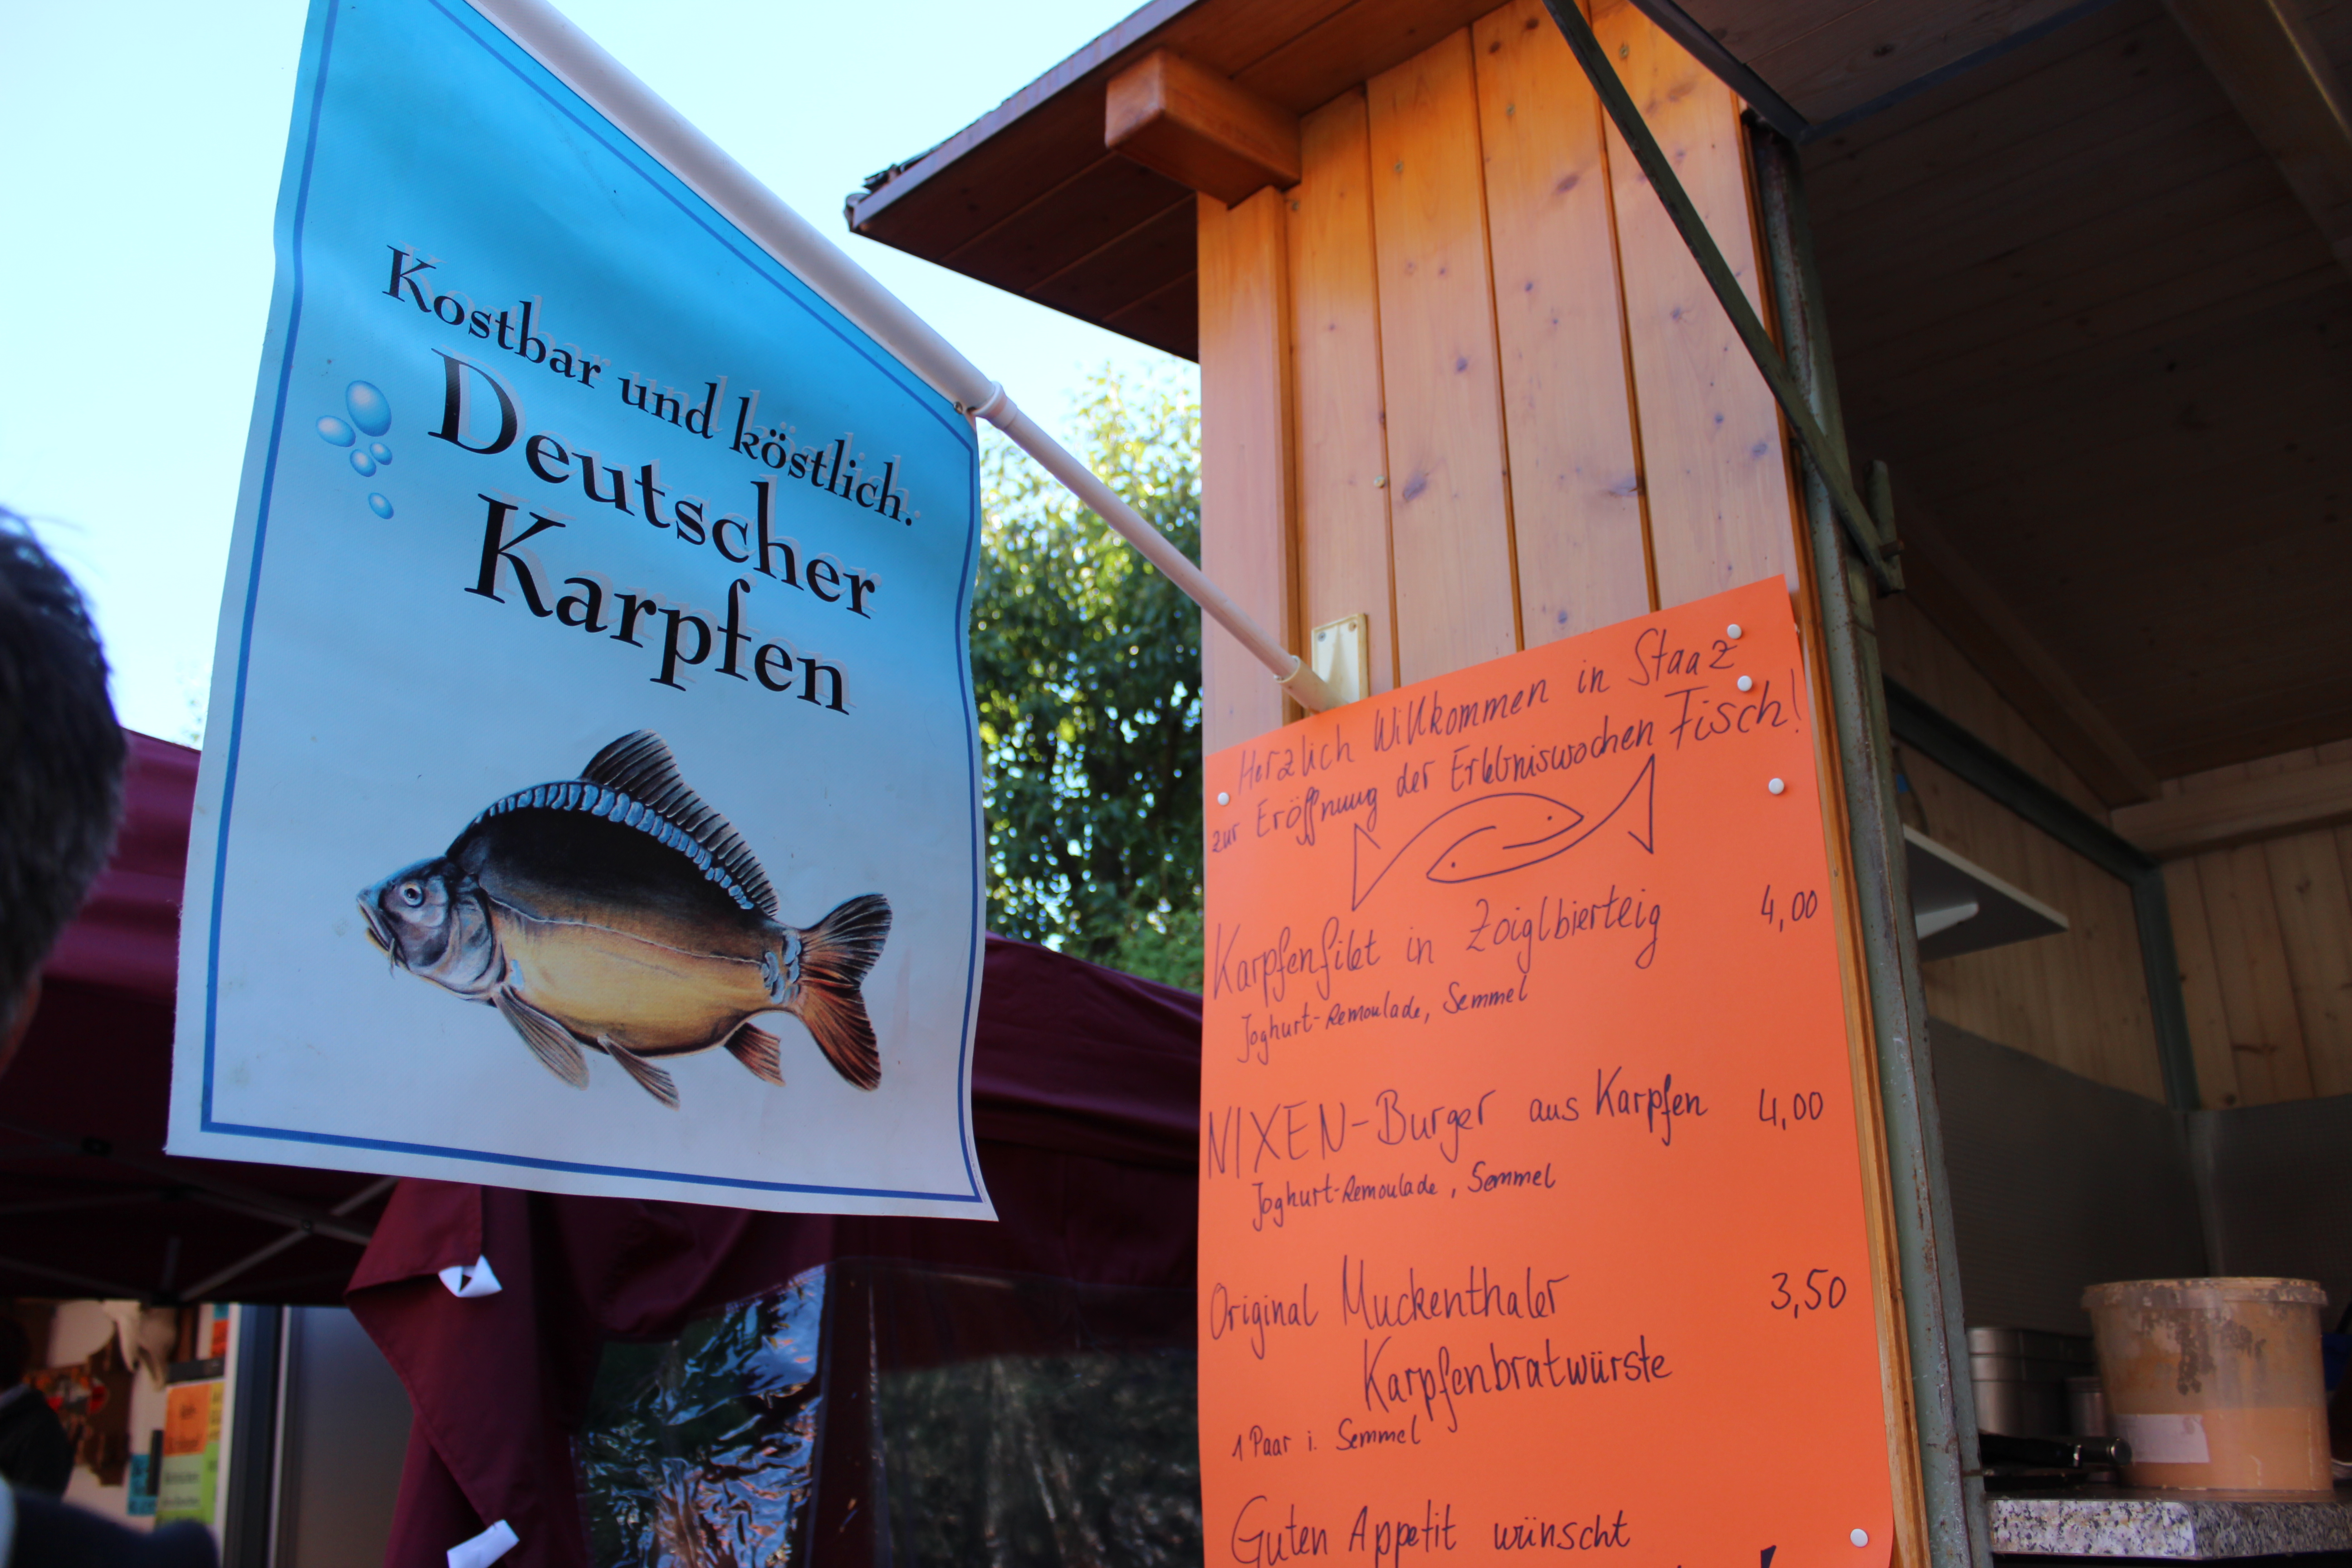 Kostbar und köstlich.
Deutscher
Karpfen
Herzlich Willkommen in Staaz
zur Eröffnung der Erlebniswochen Fisch!
Karpfenfilet in Zoiglbierteig 4,00
Joghurt-Remoulade, Semmel
NIXEN-Burger aus Karpfen 4,00
Joghurt-Remoulade, Semmel
Original Muckenthaler 3,50
Karpfenbratwürste
1 Paar i. Semmel
Guten Appetit wünscht